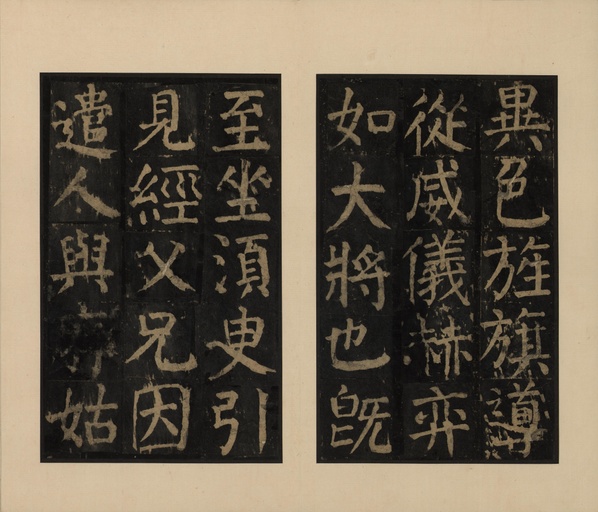 異色旌旗導
從威儀赫弈
如大將也既
至坐湏臾引
見經父兄因
遣人與姑